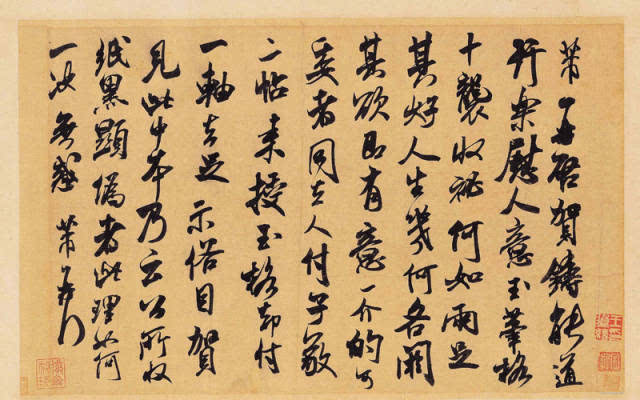 芾再啓賀鑄能道
行樂慰人意玉筆格
十襲收祕何如兩足
其好人生幾何各闕
其欲即有意一介的可
委者同去人付子敬
二帖來授玉格却付
一軸去足示俗目賀
見此中本乃云公所收
紙黑顯偽者此理如何
一決無惑芾再拜